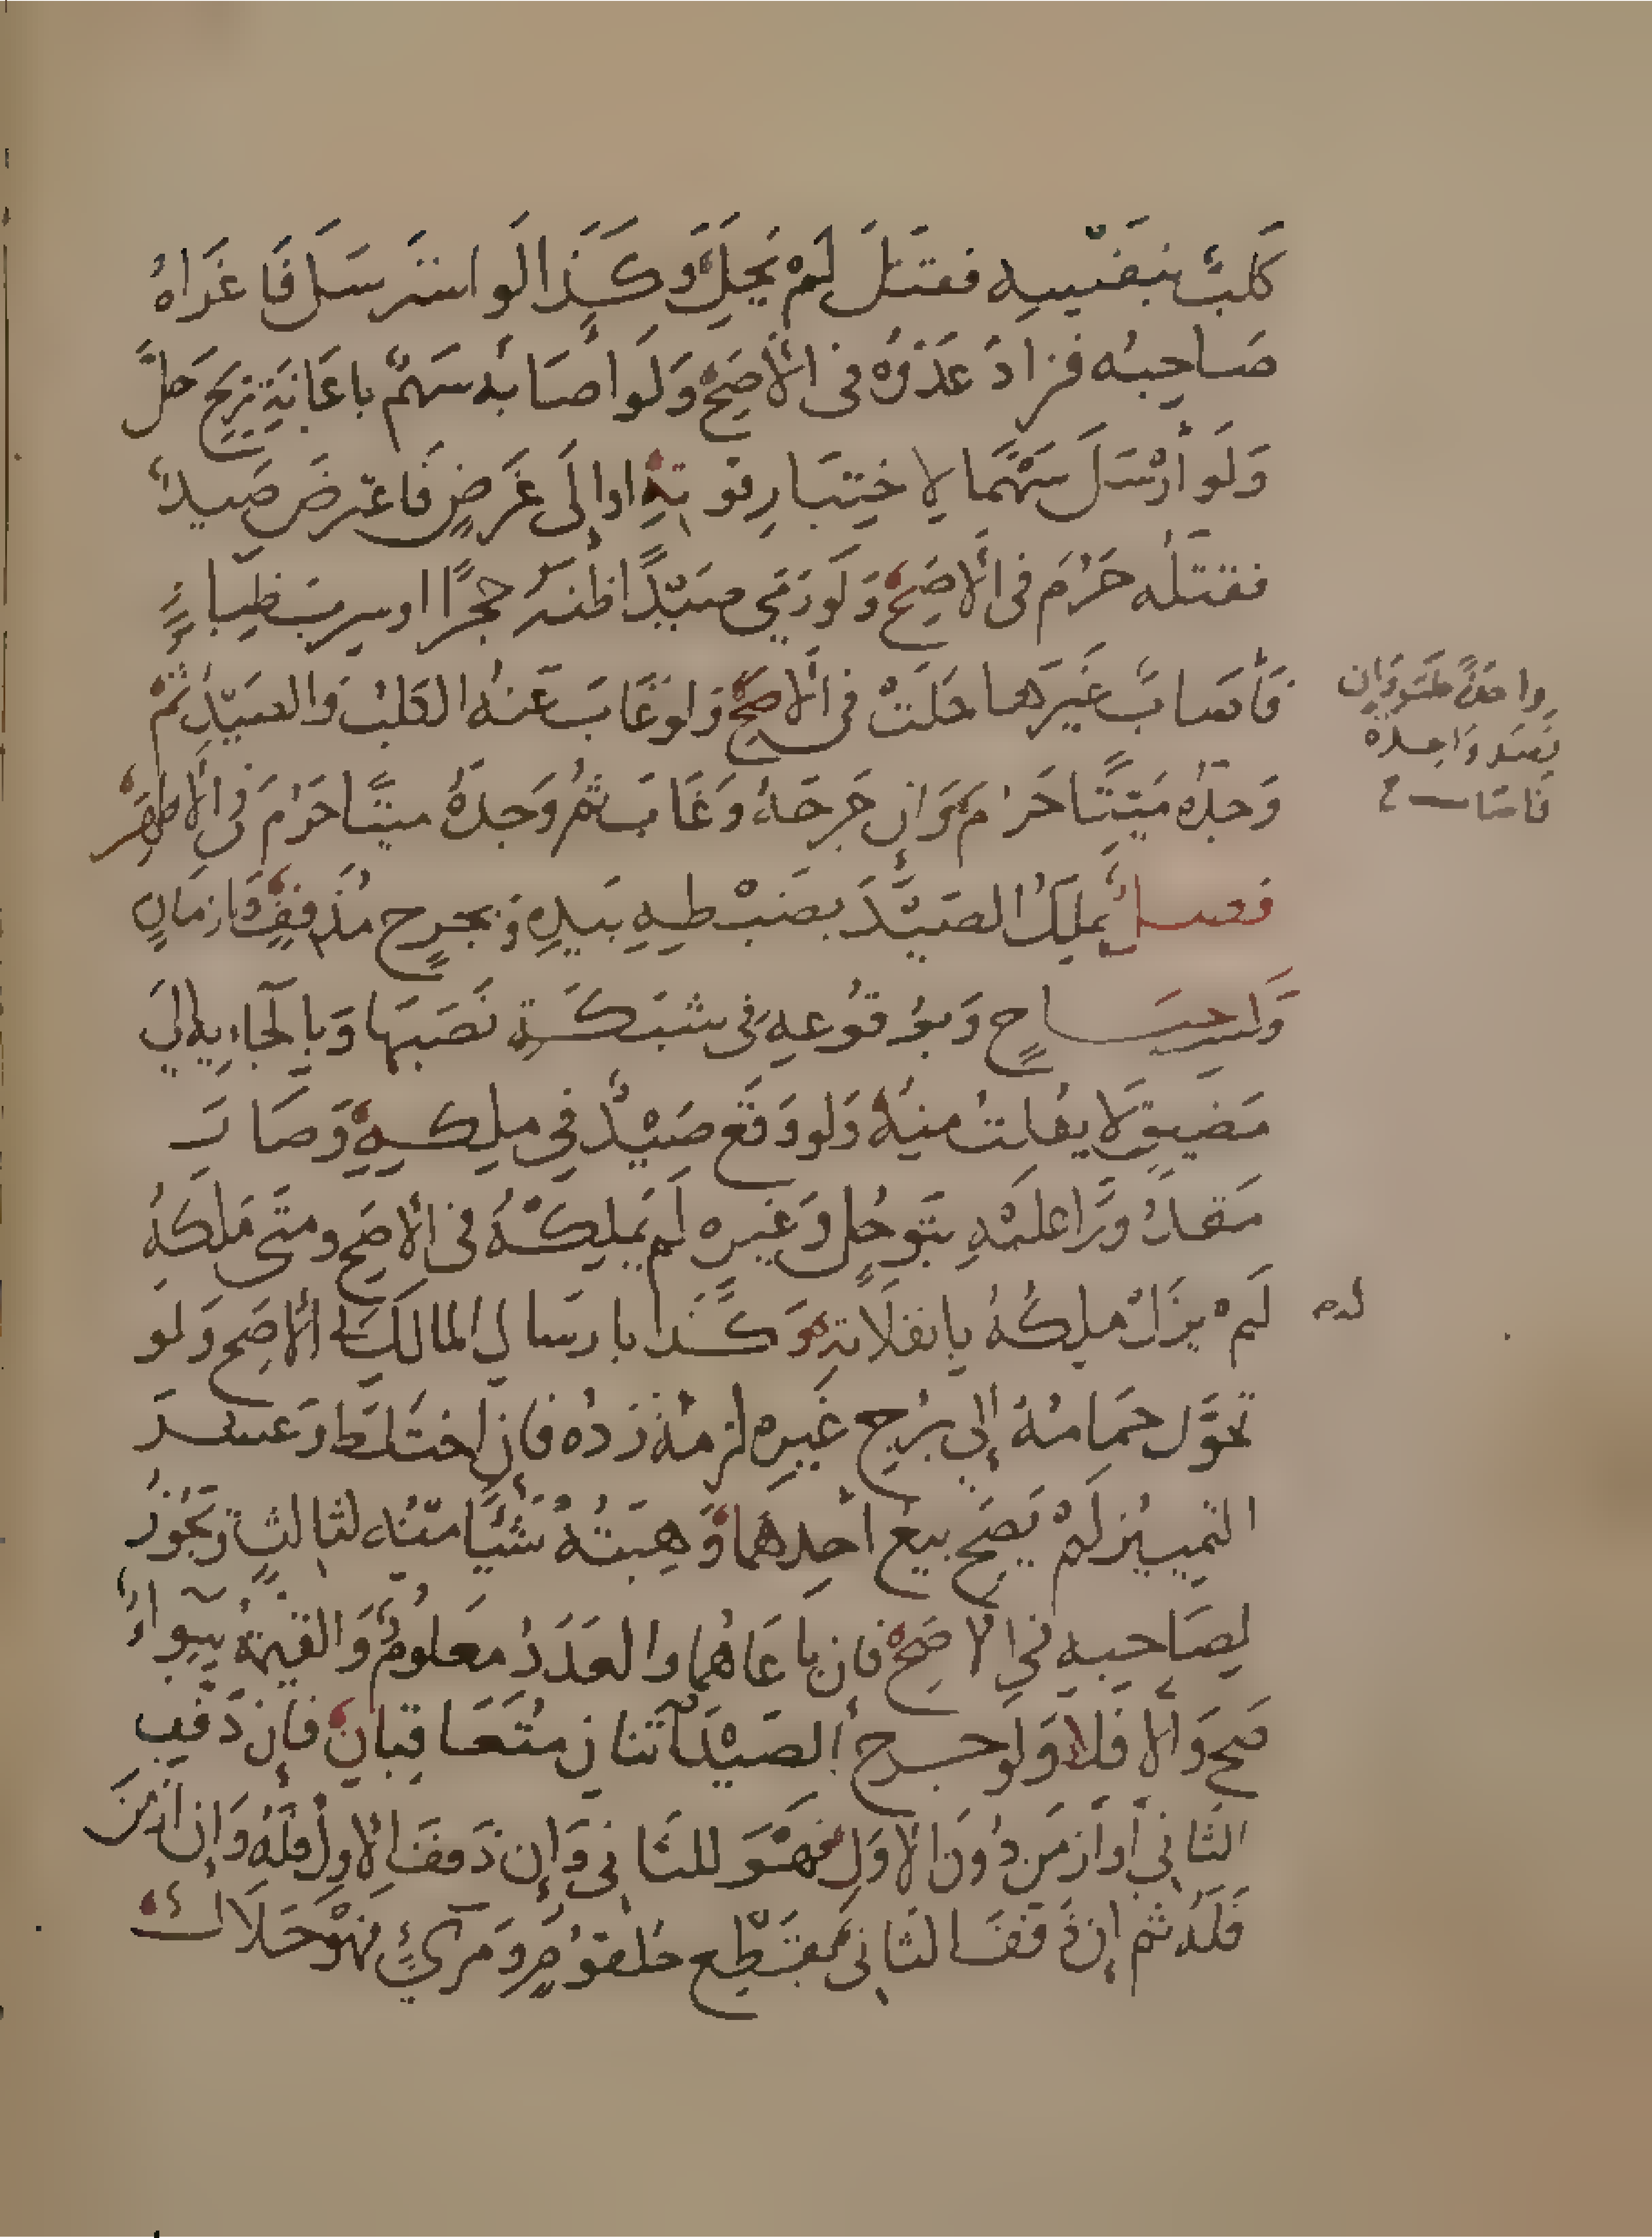 كَلبٌ بنَفسِه فقتَلَ لَمْ يَحِلَّ وَكَذَا لَو استَرسَلَ فَأغرَاهُ
صَاحِبُه فزادَ عَدْوُهُ في الأصَحِّ وَلَو أصَابه سَهمٌ باعَانَةِ رِيحٍ حَلَّ
وَلَو أرْسَلَ سَهْمًا لاختِبَارِ قوتِهِ او إلَى غَرَضٍ فَاعترَضَ صَيدٌ
فقتلَه حَرُمَ في الأصَحِّ وَلَو رَمَى صَيْدًا ظنهُ حجرًا او سرب ظِبَاءٍ
فَأصَابَ غَيرَها حَلَتْ في الأصَحِّ وَلو غَابَ عَنهُ الكلبُ وَالصَيْدُ ثُمَّ
وَجدَهُ مَيْتًا حَرُمَ وَإن جَرحَهُ وَغَابَ ثُم وَجدَهُ ميتًا حَرُمَ في الأظهَر
فصل يُملَكُ الصَيْدُ بضَبْطِهِ بيَدِهِ وَبجرحٍ مُذَفِفٍ وَبازمَانٍ
وَكسرِ جنَاحٍ وَبوُقوُعِهِ في شَبَكَةٍ نَصَبَهَا وَبِإلجَاءِهِ إلَى
مَضِيقٍ لَا يفلتُ منهُ وَلَو وَقَع صَيْدٌ في مِلكِهِ وَصَارَ
مَقدُورًا عليْهِ بتَوَحُلٍ وَغيرِه لَم يَملِكْهُ في الأصَحِ ومتَى مَلَكَهُ
لَم يزَلْ مِلكُهُ بانفلَاتِهِ وَكَذَا بإرسَالِ المالكِ لَه في الأصَحِ وَلَو
تحَوَّل حمَامُهُ إلى بُرْجِ غَيرِه لزمهُ رَدُه فَإن اختَلَطَ وَعسُرَ
التمييُز لَمْ يَصِح بيعُ أحدِهمَا وَهِبَتُهُ شَيْئًا منه لثالثٍ وَيَجُوزُ
لِصَاحبِهِ في الاصَحِّ فَإن بَاعَاهُما والعَدَدُ مَعلومٌ وَالقيمَةُ سَوآءٌ
صَح وَإلا فَلا وَلَو جرحَ الصَيْدَ آثنان مُتَعَاقِبان فَإن ذَفَفَ
الثاني أو أزمَن دُونَ الأوَلِ فهْوَ للثَاني وَإن ذَففَ الأول فلَهُ وَإن أزمَنَ
فَلَهُ ثم إن ذَففَ الثَاني بقَطعِ حُلقوُمٍ وَمَرِيءٍ فهْوَ حَلَالٌ
واحدةً
قصَد وَاحدَة
فَاصَابَ